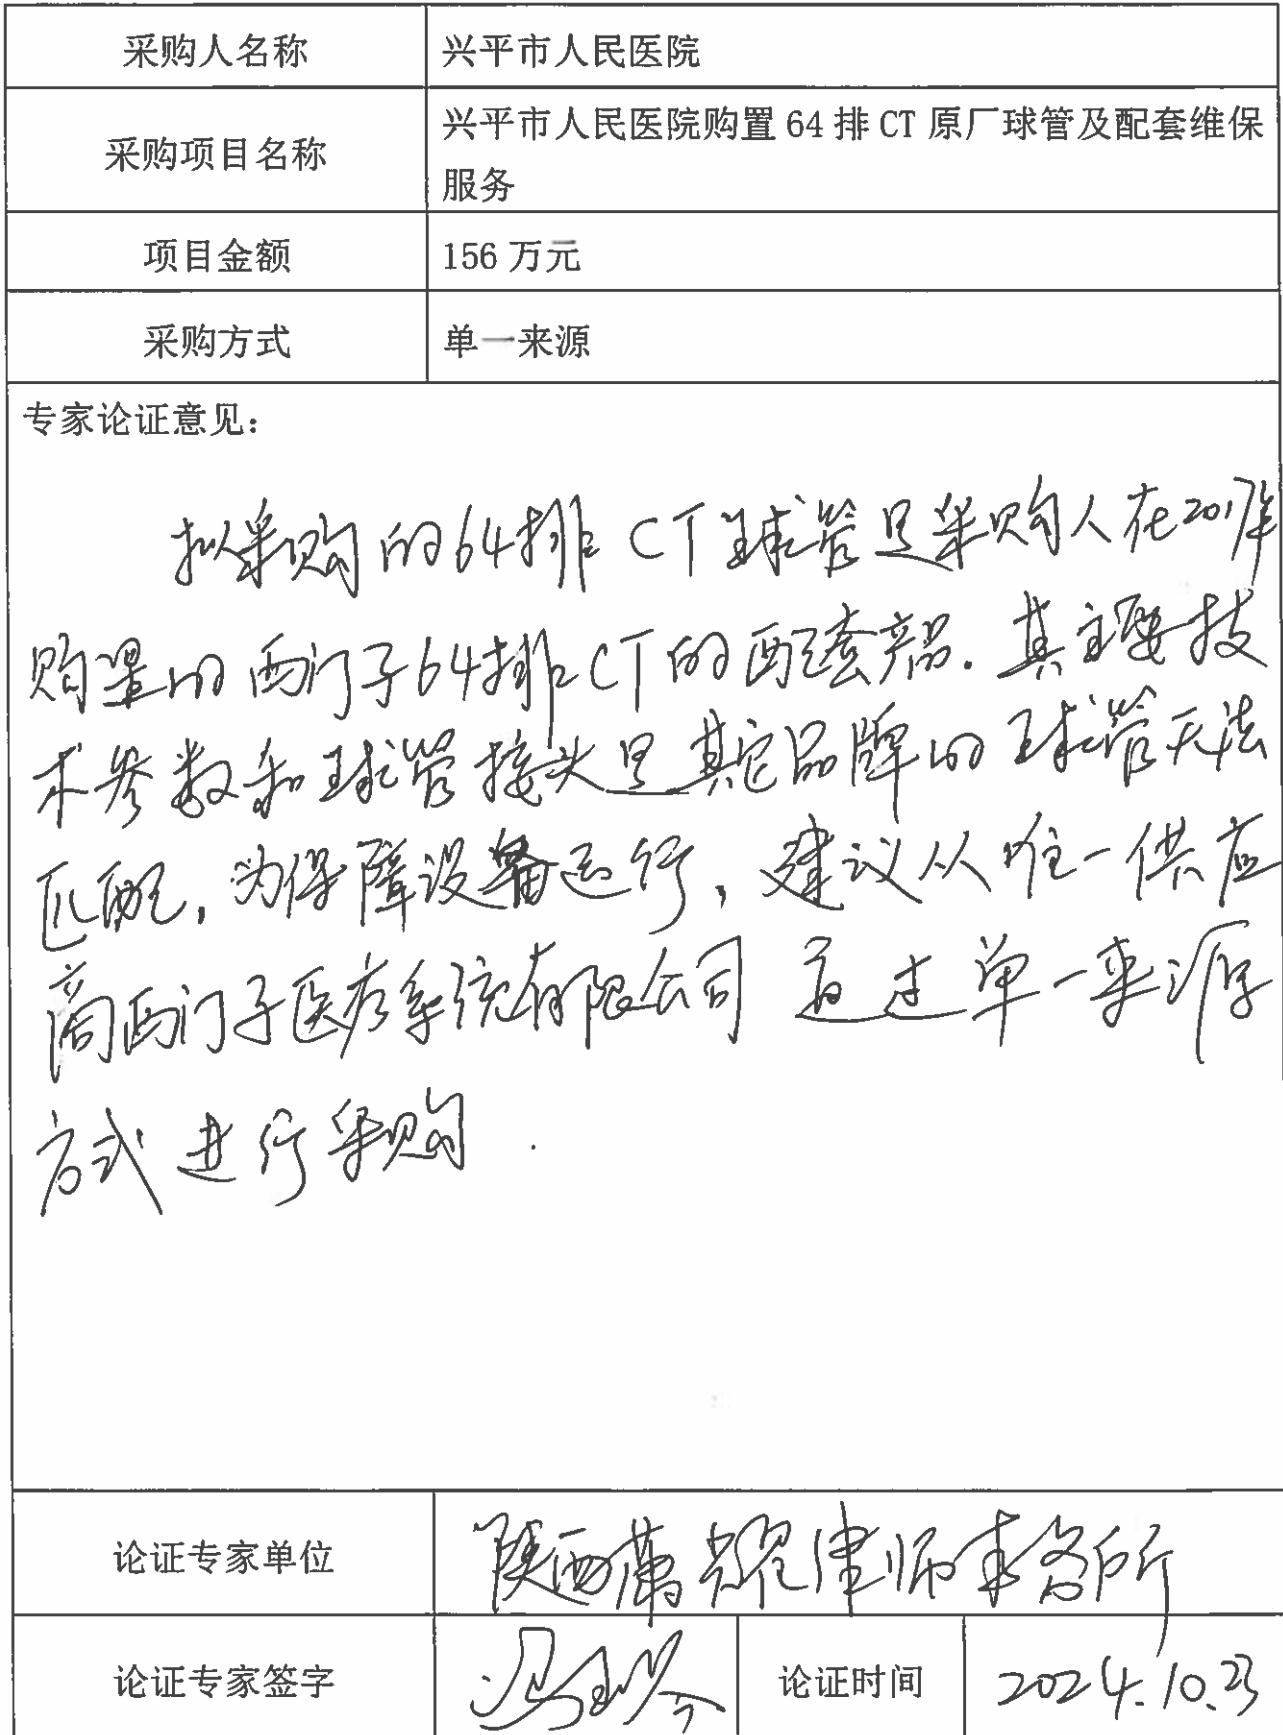 采购人名称 兴平市人民医院
采购项目名称 兴平市人民医院购置 64 排 CT 原厂球管及配套维保
服务
项目金额 156 万元
采购方式 单一来源
专家论证意见：
拟采购的64排CT球管是采购人在2017年
购置的西门子64排CT的配套部品．其主要技
术参数和球管接头是其它品牌的球管无法
匹配，为保障设备运行，建议从唯一供应
商西门子医疗系统有限公司通过单一来源
方式进行采购．
论证专家单位 陕西 律师事务所
论证专家签字 冯 论证时间 2024.10.23